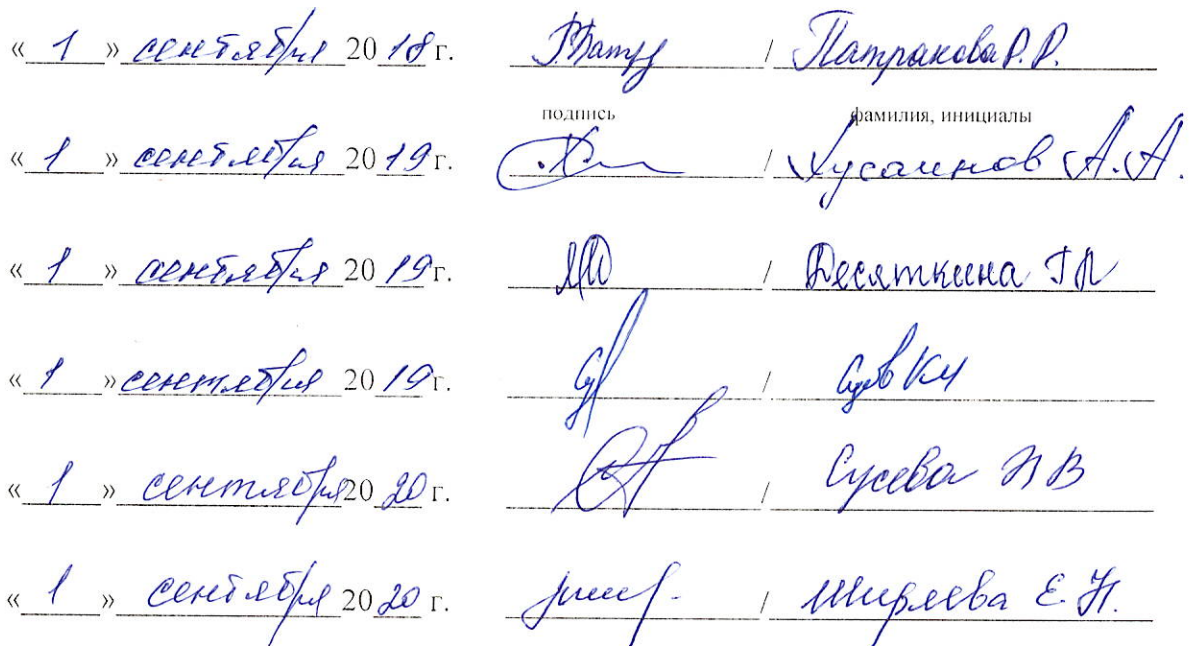 « 1 » сентября 20 18 г. / Патракова Р. Р.
подпись фамилия, инициалы
« 1 » сентября 20 19 г. / Хусаинов А. А.
« 1 » сентября 20 19 г. / Десяткина
« 1 » сентября 20 19 г. /
« 1 » сентября 20 20 г. / Сусева В
« 1 » сентября 20 20 г. / Ширяева Е. Н.